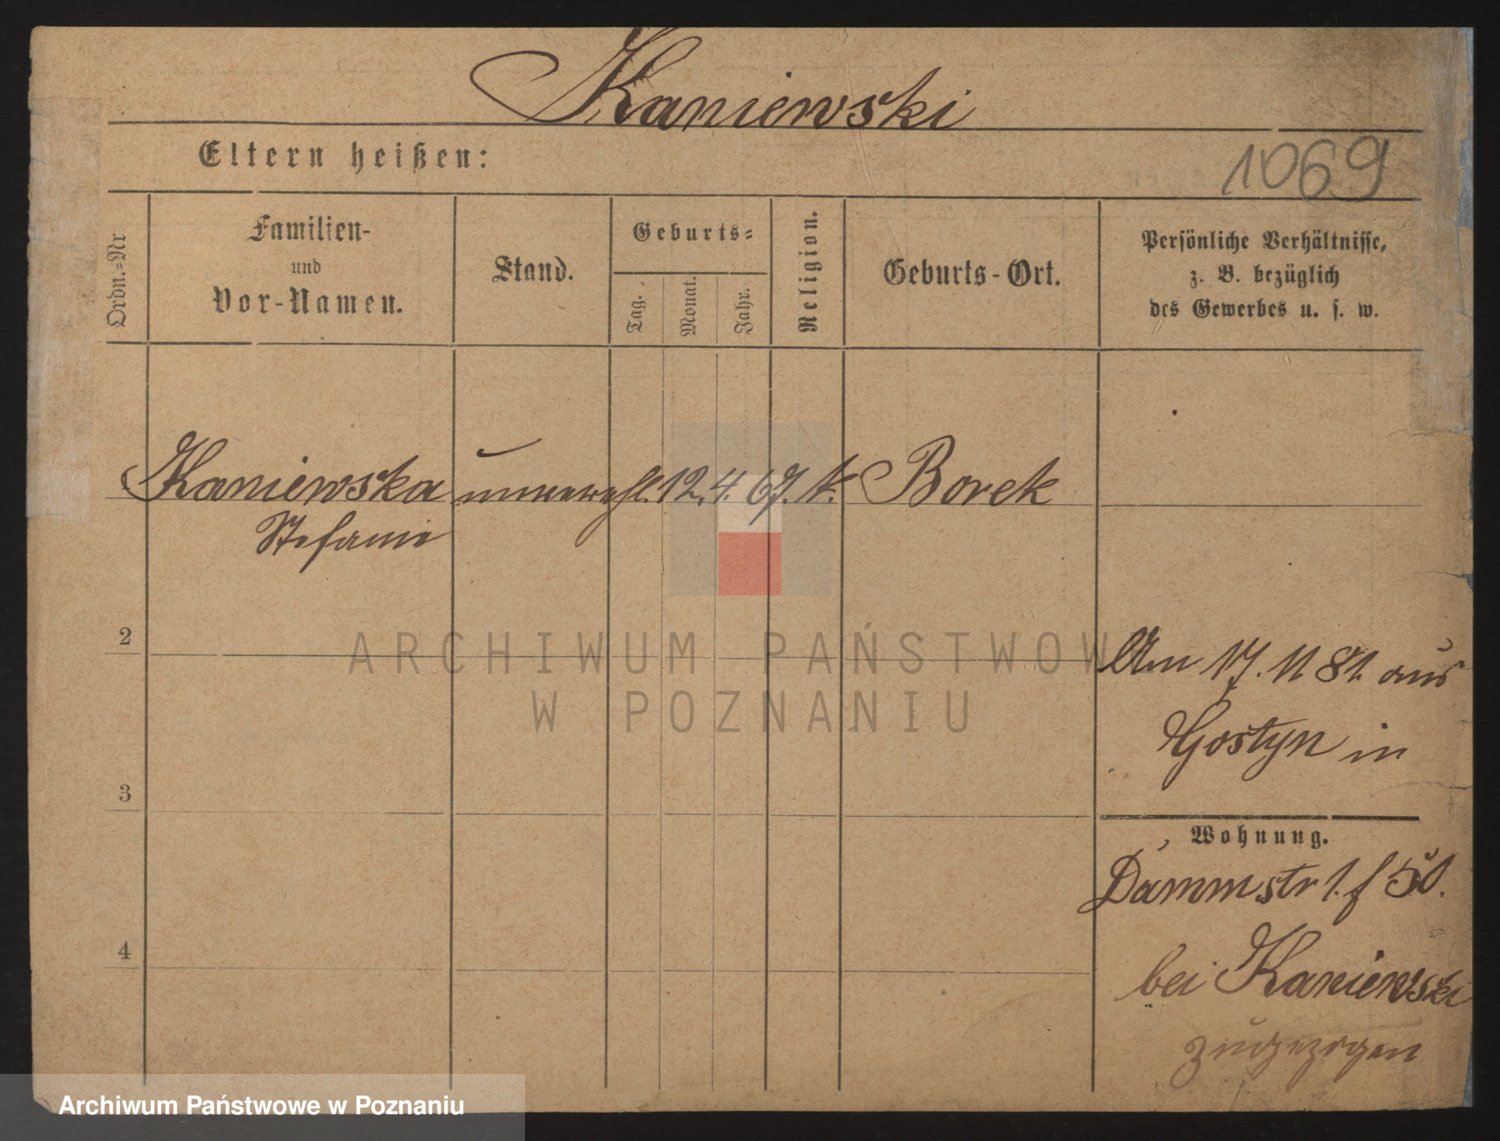 Kaniewski
Eltern heißen:
1069
Ordn.-Nr
Familien-
und
Vor-Namen.
Stand.
Geburts-
Tag.
Monat.
Jahr.
Religion.
Geburts-Ort.
Persönliche Verhältnisse,
z. B. bezüglich
des Gewerbes u. s. w.
Kaniewska unverehl. 12. 4. 67. k. Borek
Stefanie
2
3
4
Am 17. 11 81. aus
Gostyn in
Wohnung.
Dammstr 1.
bei Kaniewski
zugezogen
ARCHIWUM PAŃSTWOW
W POZNANIU
Archiwum Państwowe w Poznaniu